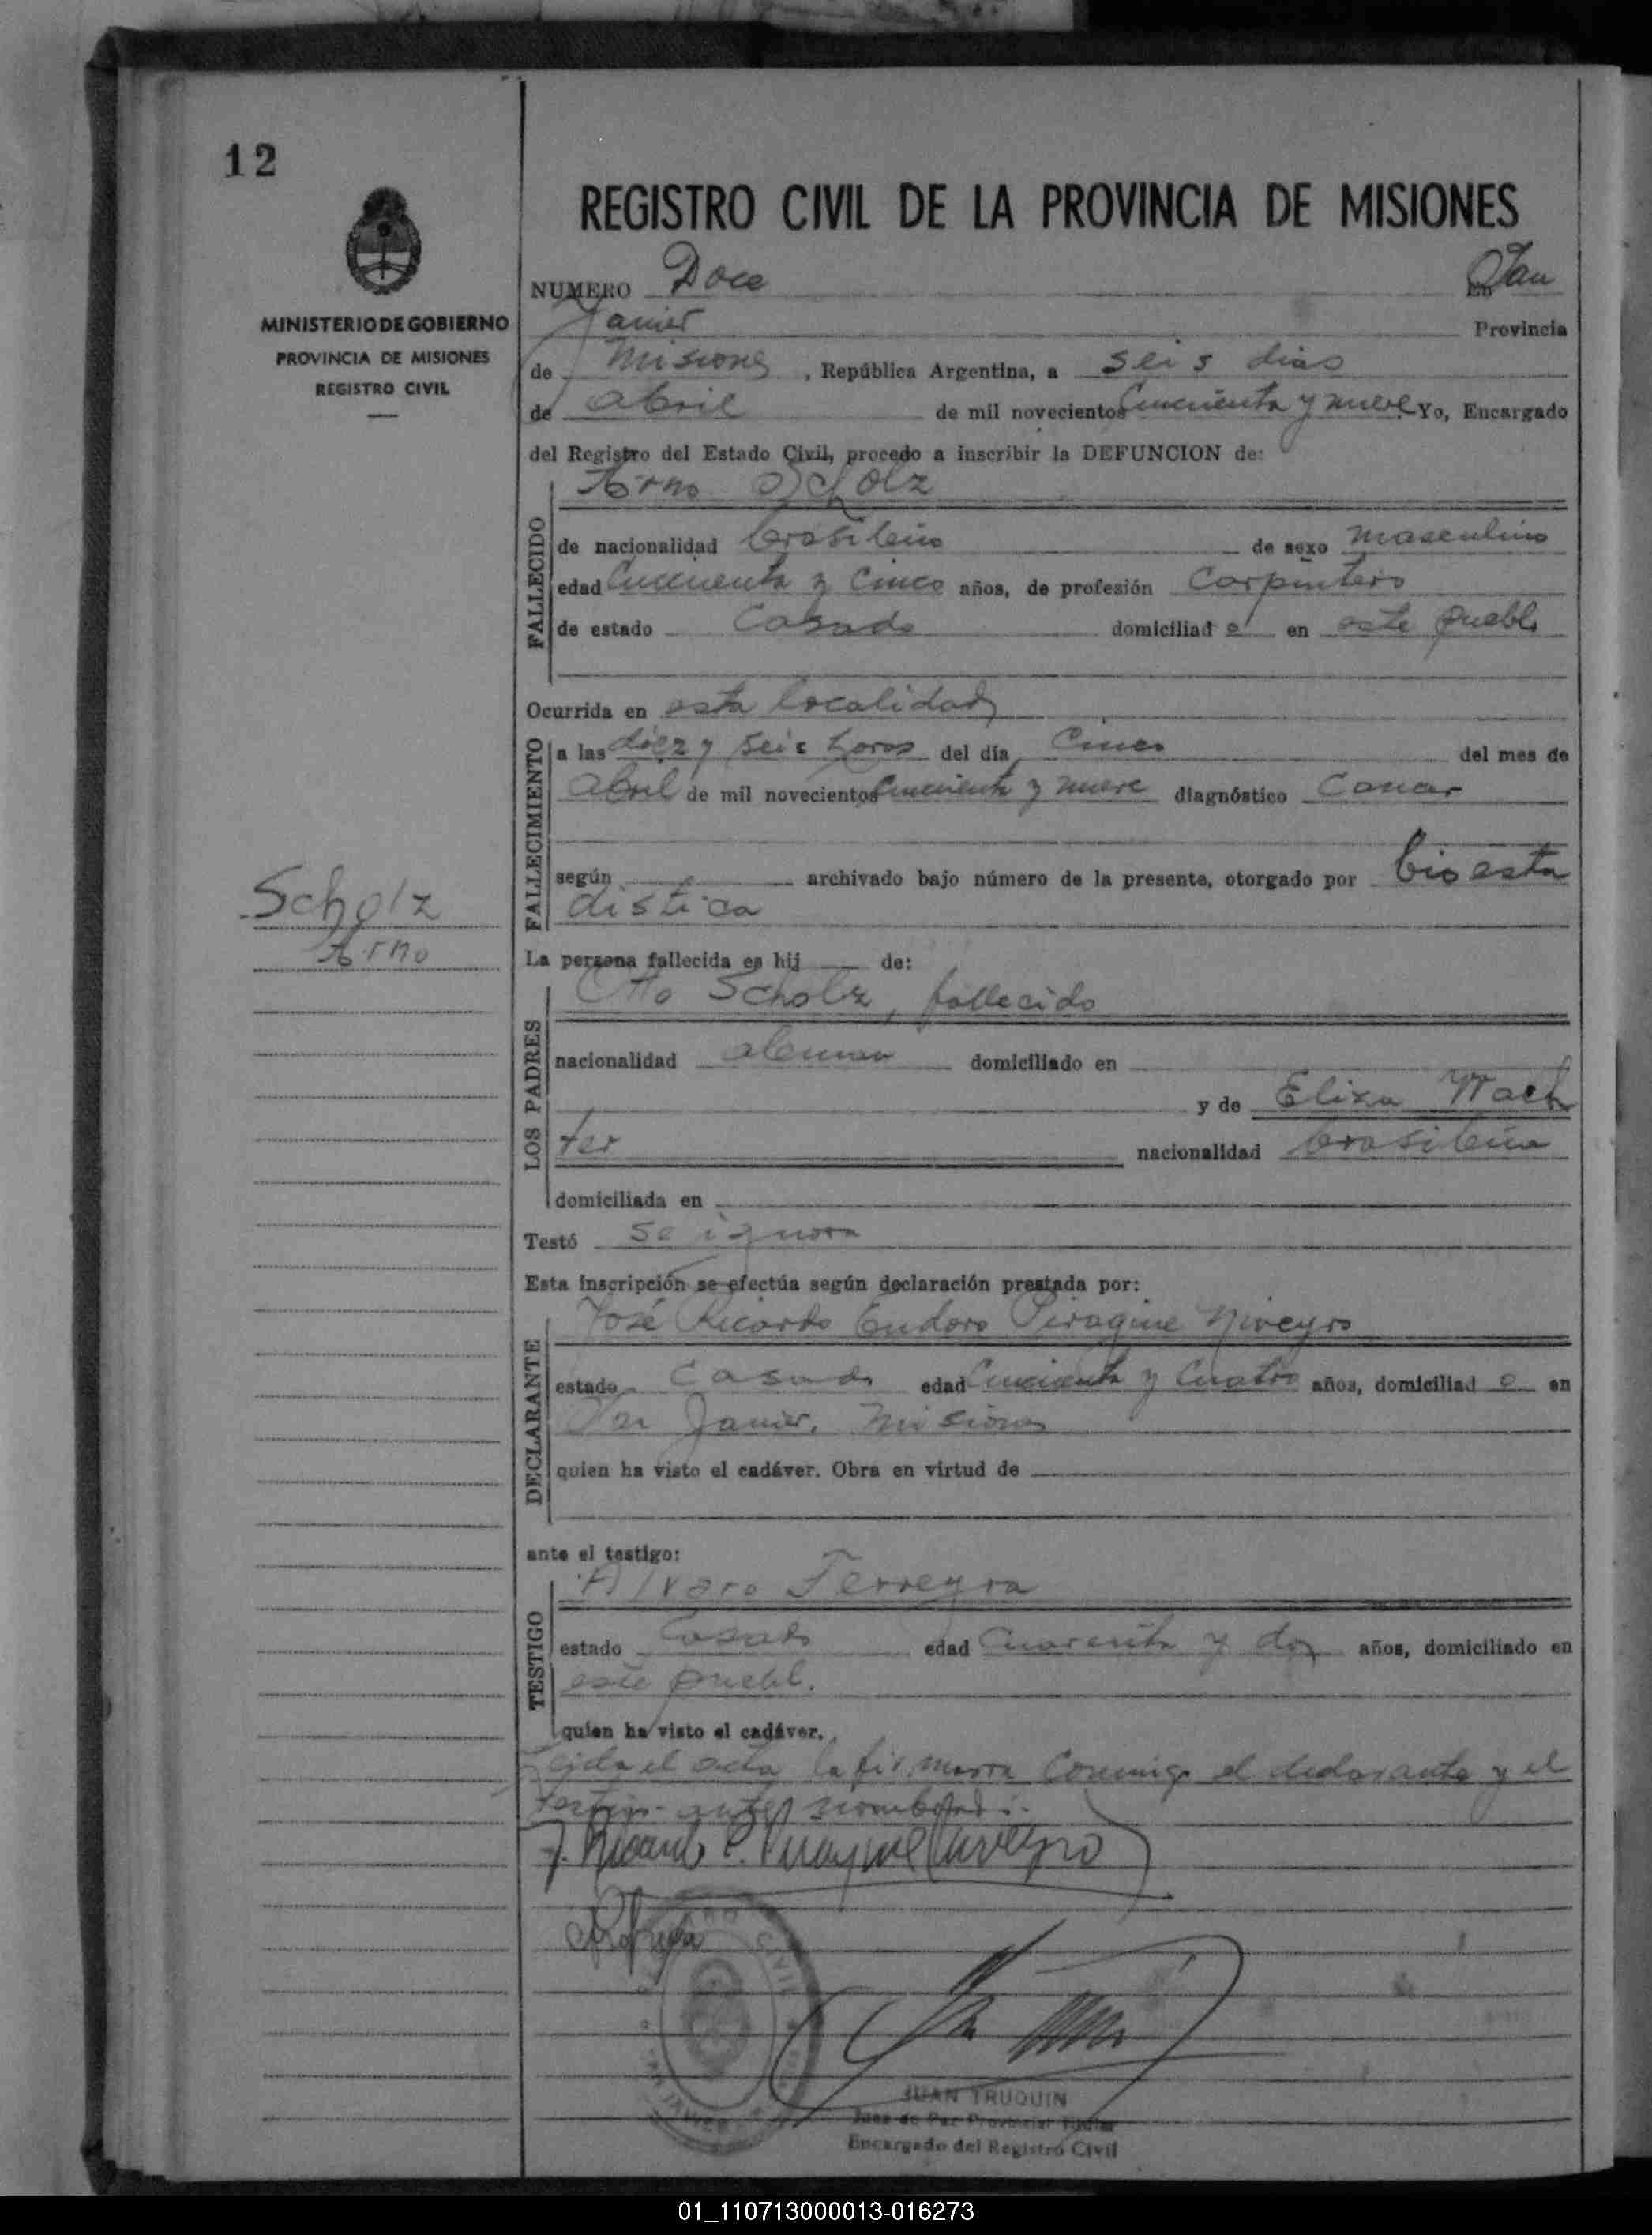 12
MINISTERIO DE GOBIERNO
PROVINCIA DE MISIONES
REGISTRO CIVIL
REGISTRO CIVIL DE LA PROVINCIA DE MISIONES
NUMERO Doce En San
Javier Provincia
de Misiones, República Argentina, a seis dias
de abril de mil novecientos cincuenta y nueve Yo, Encargado
del Registro del Estado Civil, procedo a inscribir la DEFUNCION de:
FALLECIDO
Arno Scholz
de nacionalidad brasileño de sexo masculino
edad Cincuenta y Cinco años, de profesión Carpintero
de estado Casado domiciliad o en este pueblo
Ocurrida en esta localidad
FALLECIMIENTO
a las diez y seis horas del día Cinco del mes de
Abril de mil novecientos cincuenta y nueve diagnóstico Cancer
según archivado bajo número de la presente, otorgado por bioesta
distica
Scholz
Arno
La persona fallecida es hij de:
LOS PADRES
Otto Scholz, fallecido
nacionalidad aleman domiciliado en
y de Eliza Wach
ter nacionalidad brasileña
domiciliada en
Testó se ignora
Esta inscripción se efectúa según declaración prestada por:
DECLARANTE
José Ricardo Eudoro Piragine Niveyro
estado Casado edad Cincuenta y Cuatro años, domiciliad o en
San Javier, Misiones
quien ha visto el cadáver. Obra en virtud de
ante el testigo:
TESTIGO
Alvaro Ferreyra
estado Casado edad Cuarenta y dos años, domiciliado en
este pueblo.
quien ha visto el cadáver.
Leida el acta la firmaron conmigo el declarante y el
testigo antes nombrado.
J. Ricardo E. Piragine Niveyro
JUAN TRUQUIN
Juez de Paz Provincial Titular
Encargado del Registro Civil
01_110713000013-016273